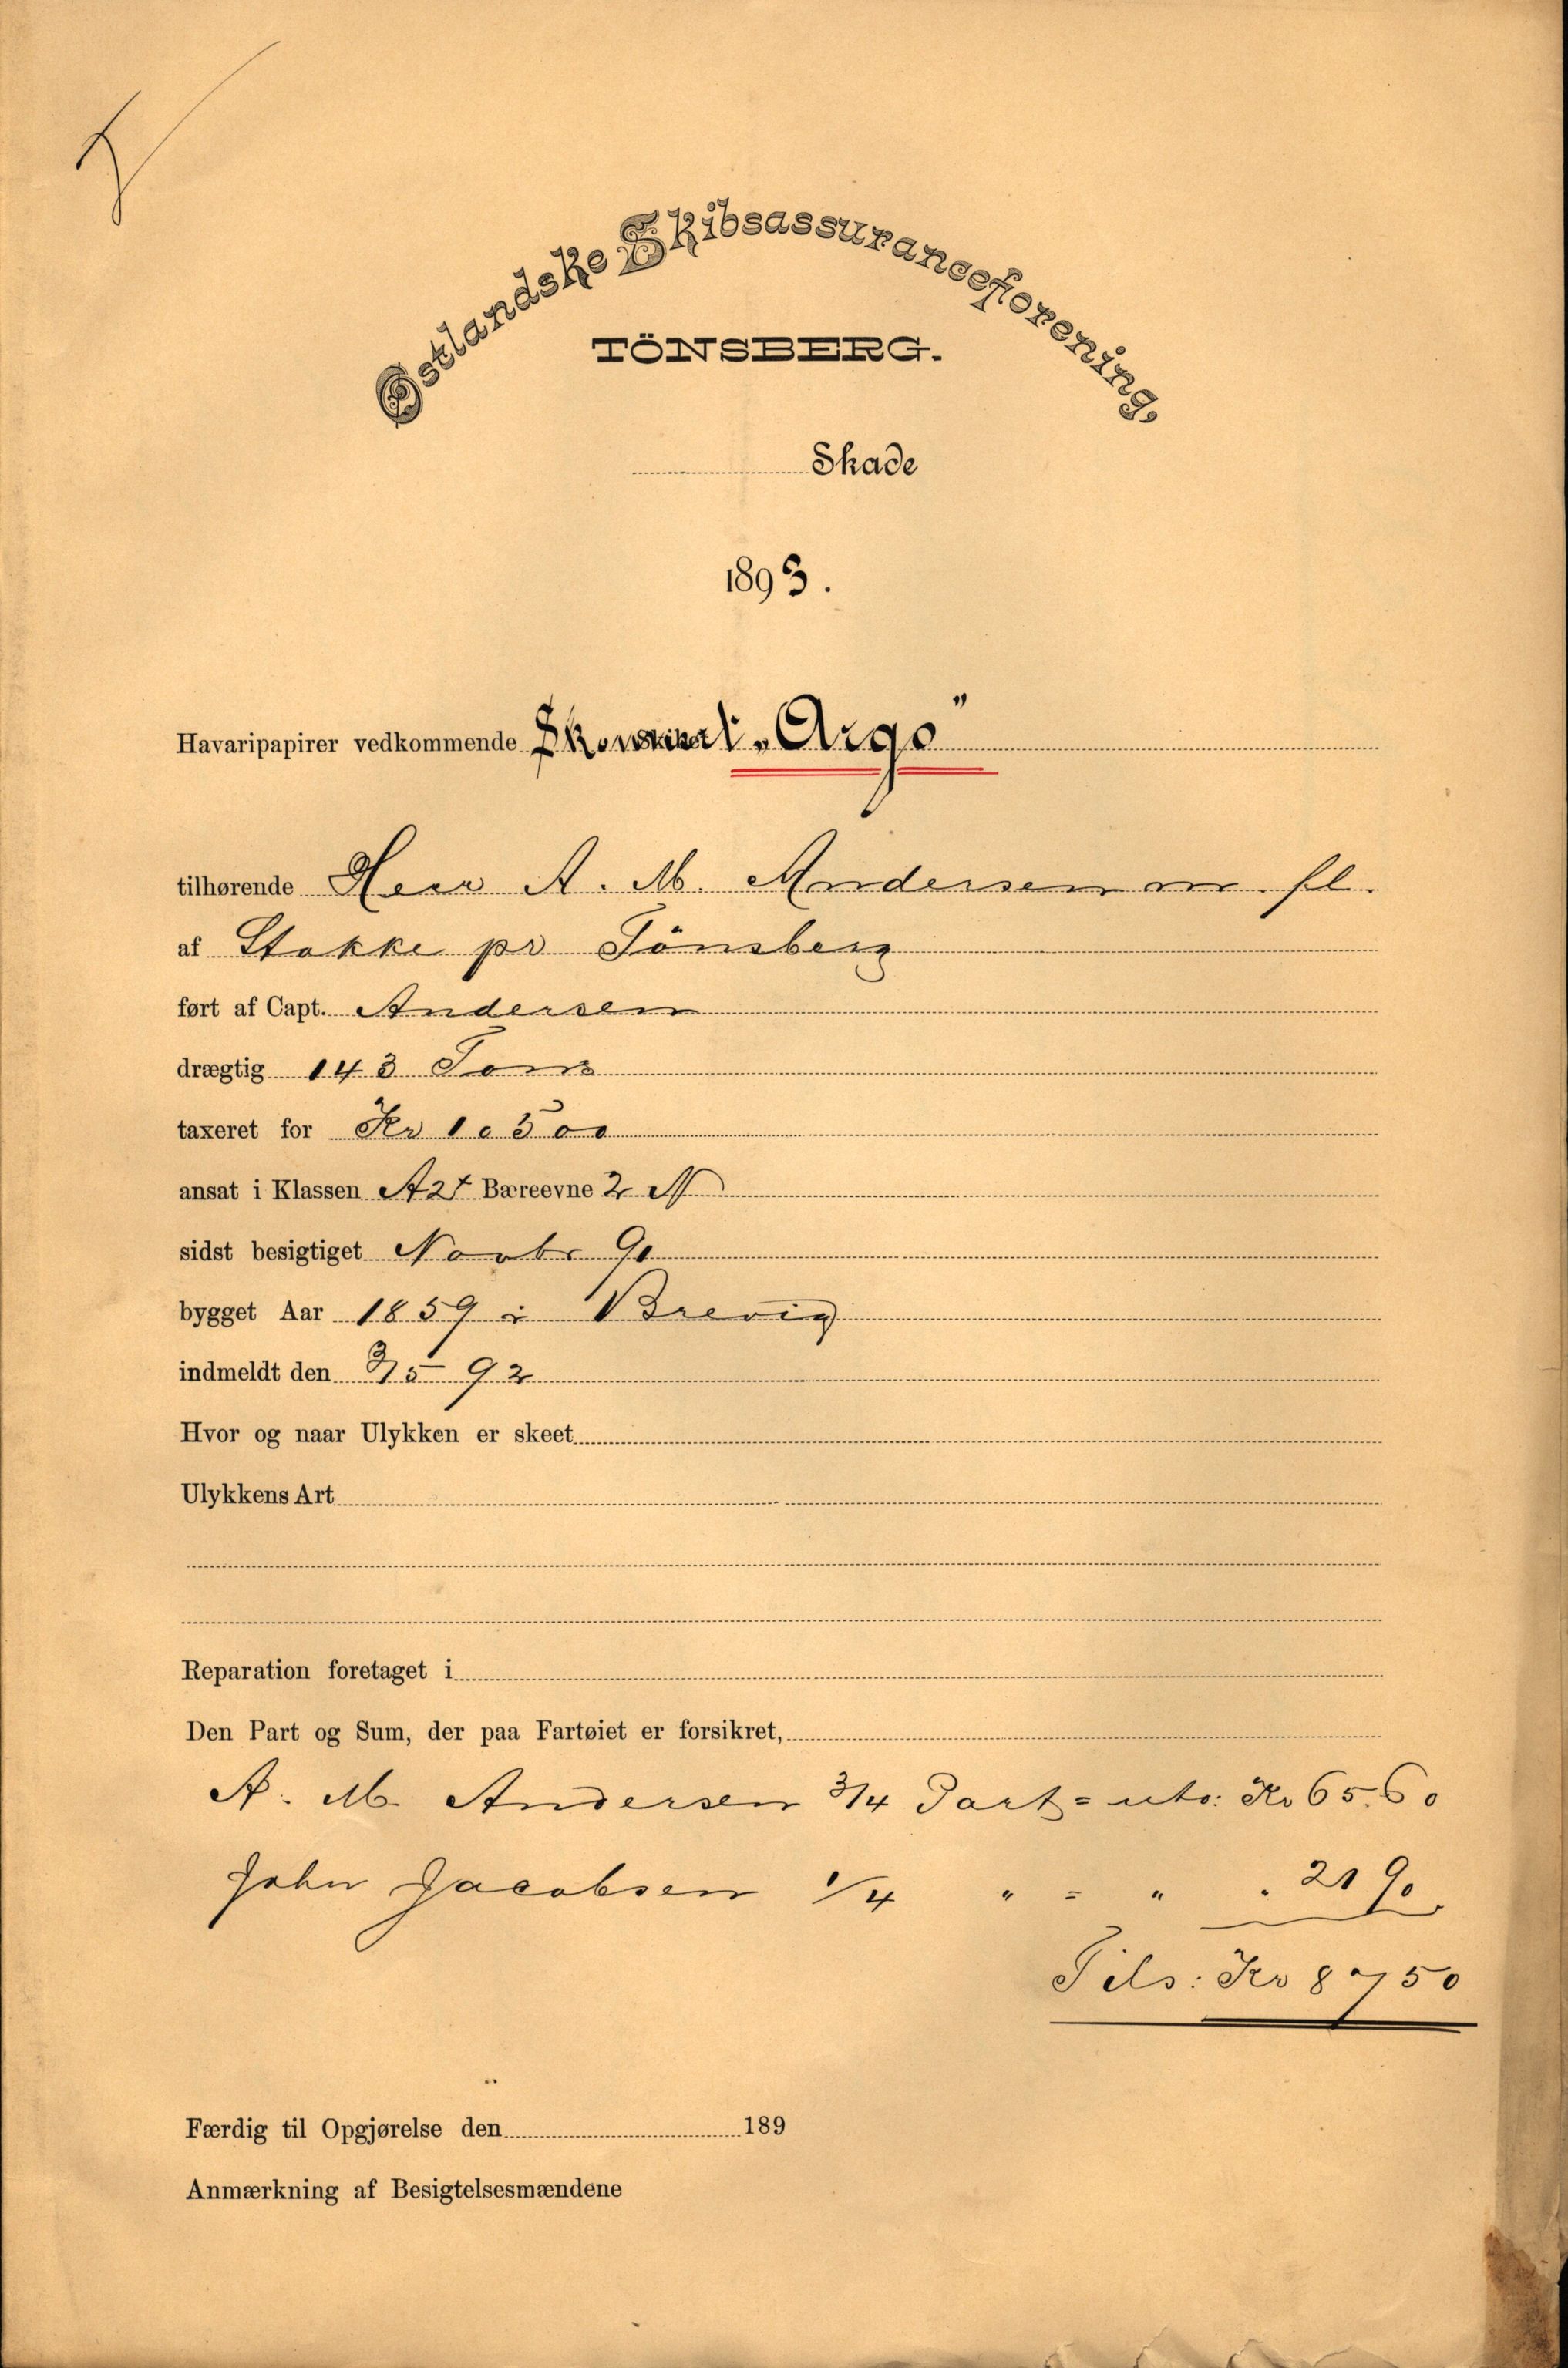 Østlandske Skibsassuranceforening,
TÖNSBERG.
Skade
1893.
Havaripapirer vedkommende „Argo"
tilhørende Herr A. M. Andersen m. fl.
af Stokke pr Tönsberg
ført af Capt. Andersen
drægtig 143 Tons
taxeret for Kr 10500
ansat i Klassen A2† Bæreevne 2
sidst besigtiget Novbr 90
bygget Aar 1859 i Brevig
indmeldt den 3/5 92
Hvor og naar Ulykken er skeet
Ulykkens Art
Reparation foretaget i
Den Part og Sum, der paa Fartøiet er forsikret,
A. M. Andersen 3/4 Part = Kr 6560
John Jacobsen 1/4 " = " . 2190
Tils: Kr 8750
Færdig til Opgjørelse den 189
Anmærkning af Besigtelsesmændene